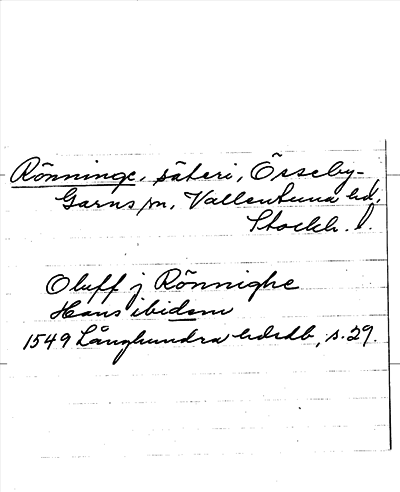 Rönninge, säteri, Össeby-
Garns sn, Vallentuna hd,
Stockh. l.
Oluff j Rönnighe
Hans ibidem
1549 Långhundra hdrdb, s.29.